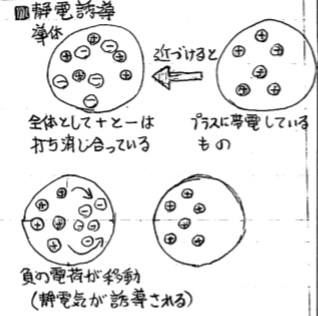 静電誘導
導体
近づけると
全体として+と-は
打ち消し合っている
プラスに帯電している
もの
負の電荷が移動
(静電気が誘導される)